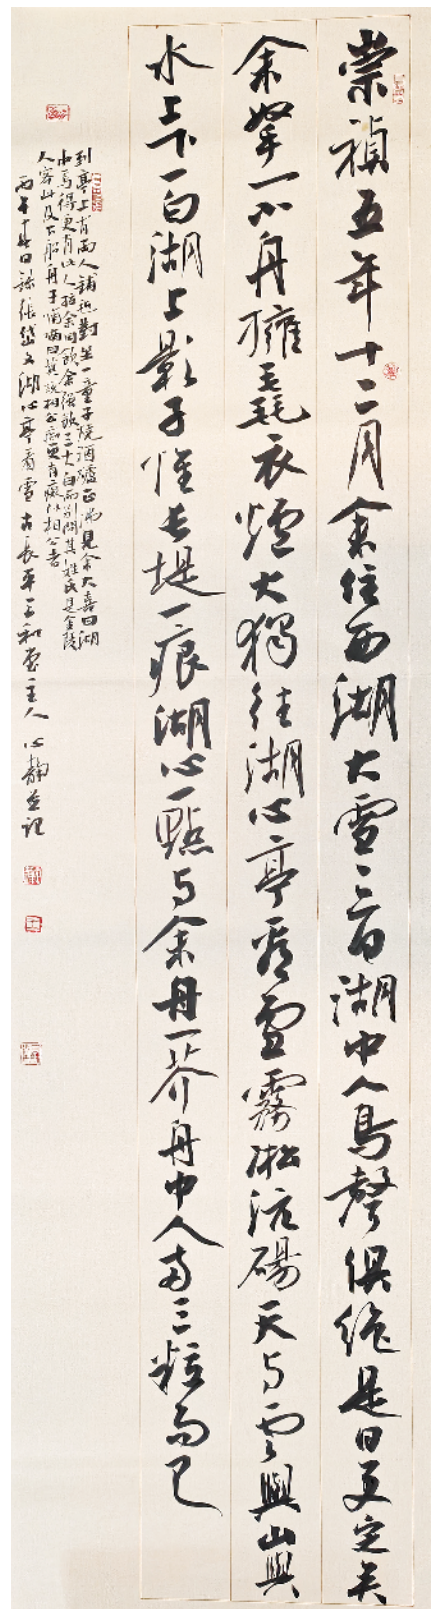 崇禎五年十二月余住西湖大雪三日湖中人鳥聲俱絶是日更定矣
余拏一小舟擁毳衣爐火獨往湖心亭看雪霧凇沆碭天与雲與山與
水上下一白湖上影子惟長堤一痕湖心一點与余舟一芥舟中人两三粒而已
到亭上有两人鋪氈對坐一童子燒酒爐正沸見余大喜曰湖
中焉得更有此人拉余同飲余强飲三大白而别問其姓氏是金陵
人客此及下船舟子喃喃曰莫説相公痴更有癡似相公者
丙午春日録張岱文湖心亭看雪古長平主人心静並记